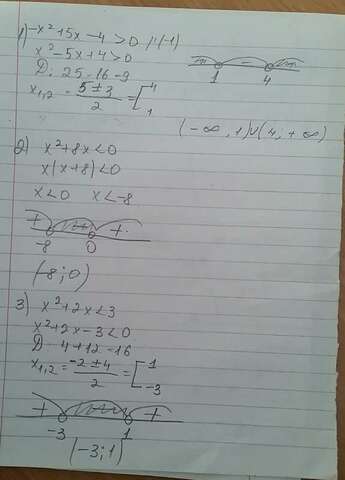 1) -x²+5x-4>0 |·(-1)
x²-5x+4>0
D: 25-16-9
x₁,₂ = 5±3/2 = [4 1
- 1 4
(-∞, 1)∪(4, +∞)
2) x²+8x<0
x(x+8)<0
x<0 x<-8
+ +
-8 0
(-8;0)
3) x²+2x<3
x²+2x-3<0
D 4+12-16
x₁,₂ = -2±4/2 = [1 -3
+ +
-3 1
(-3;1)